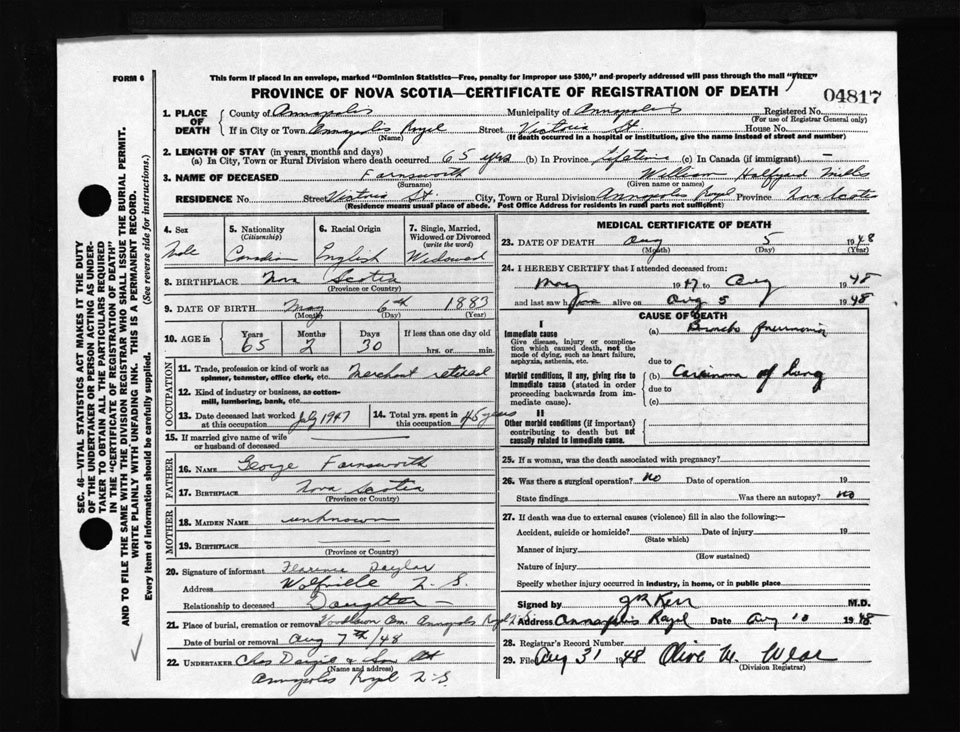 FORM 6
This form if placed in an envelope, marked "Dominion Statistics—Free, penalty for improper use $300," and properly addressed will pass through the mail "FREE"
PROVINCE OF NOVA SCOTIA—CERTIFICATE OF REGISTRATION OF DEATH
04817
1. PLACE OF DEATH County of Annapolis Municipality of Annapolis Registered No.
(For use of Registrar General only)
If in City or Town Annapolis Royal Street Victoria St House No.
(Name) (If death occurred in a hospital or institution, give the name instead of street and number)
2. LENGTH OF STAY (in years, months and days)
(a) In City, Town or Rural Division where death occurred 65 yrs (b) In Province Lifetime (c) In Canada (if immigrant) —
3. NAME OF DECEASED Farnsworth William Halfyard Mills
(Surname) (Given name or names)
RESIDENCE No. Street Victoria St. City, Town or Rural Division Annapolis Royal Province Nova Scotia
(Residence means usual place of abode. Post Office Address for residents in rural parts not sufficient)
4. Sex 5. Nationality (Citizenship) 6. Racial Origin 7. Single, Married, Widowed or Divorced (write the word)
Male Canadian English Widowed
8. BIRTHPLACE Nova Scotia
(Province or Country)
9. DATE OF BIRTH May 6th 1883
(Month) (Day) (Year)
10. AGE in Years Months Days If less than one day old
65 2 30 hrs. or min.
OCCUPATION
11. Trade, profession or kind of work as spinner, teamster, office clerk, etc. Merchant retired
12. Kind of industry or business, as cotton-mill, lumbering, bank, etc.
13. Date deceased last worked at this occupation July 1947 14. Total yrs. spent in this occupation 45 years
15. If married give name of wife or husband of deceased
FATHER
16. NAME George Farnsworth
17. BIRTHPLACE Nova Scotia
(Province or Country)
MOTHER
18. MAIDEN NAME unknown
19. BIRTHPLACE
(Province or Country)
20. Signature of informant Florence Taylor
Address Wolfville N. S.
Relationship to deceased Daughter
21. Place of burial, cremation or removal Woodlawn Cem. Annapolis Royal N.S.
Date of burial or removal Aug 7th/48
22. UNDERTAKER Chas & Son
(Name and address)
Annapolis Royal N.S.
MEDICAL CERTIFICATE OF DEATH
23. DATE OF DEATH Aug 5 1948
(Month) (Day) (Year)
24. I HEREBY CERTIFY that I attended deceased from:
May 1947 to Aug 1948
and last saw him alive on Aug 5 1948
CAUSE OF DEATH
I
Immediate cause (a) Broncho pneumonia
Give disease, injury or complication which caused death, not the mode of dying, such as heart failure, asphyxia, asthenia, etc.
due to
Morbid conditions, if any, giving rise to immediate cause (stated in order proceeding backwards from immediate cause).
(b) Carcinoma of Lung
due to
(c)
II
Other morbid conditions (if important) contributing to death but not causally related to immediate cause.
25. If a woman, was the death associated with pregnancy?
26. Was there a surgical operation? No Date of operation 19
State findings Was there an autopsy? No
27. If death was due to external causes (violence) fill in also the following:—
Accident, suicide or homicide? Date of injury 19
(State which)
Manner of injury
(How sustained)
Nature of injury
Specify whether injury occurred in industry, in home, or in public place
Signed by Kerr M.D.
Address Annapolis Royal Date Aug 10 1948
28. Registrar's Record Number
29. Filed Aug 31 1948 Olive M. Wear
(Division Registrar)
SEC. 46—VITAL STATISTICS ACT MAKES IT THE DUTY
OF THE UNDERTAKER OR PERSON ACTING AS UNDER-
TAKER TO OBTAIN ALL THE PARTICULARS REQUIRED
IN THE "CERTIFICATE OF REGISTRATION OF DEATH"
AND TO FILE THE SAME WITH THE DIVISION REGISTRAR WHO SHALL ISSUE THE BURIAL PERMIT.
WRITE PLAINLY WITH UNFADING INK. THIS IS A PERMANENT RECORD.
Every item of information should be carefully supplied. (See reverse side for instructions.)